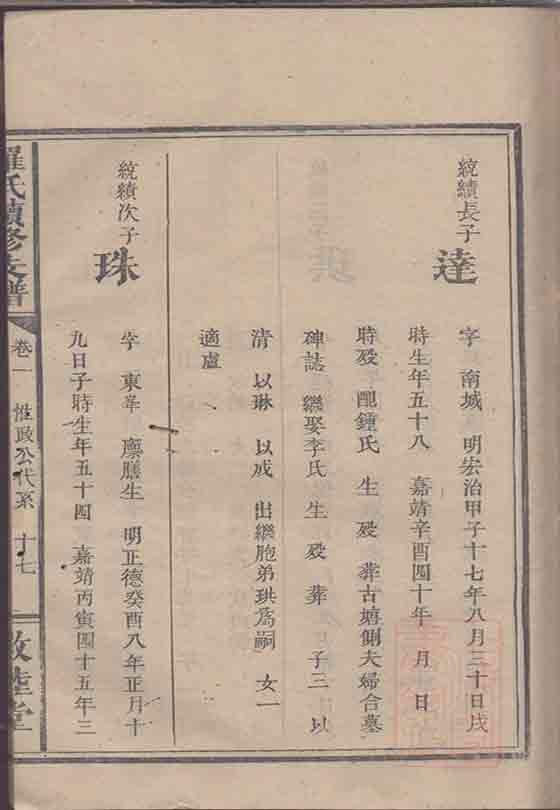 統績長子
達
字 南城 明宏治甲子十七年八月三十日戌
時生年五十八 嘉靖辛酉四十年 月 日
時歿 配鍾氏 生 歿 葬古塘側夫婦合墓
碑誌 繼娶李氏 生 歿 葬 子三 以
清 以琳 以成 出繼胞弟珙爲嗣 女一
適盧
統績次子
珠
字 東峯 廩膳生 明正德癸酉八年正月十
九日子時生年五十四 嘉靖丙寅四十五年三
羅氏續修支譜
卷一 惟政公代系 十七
敦睦堂